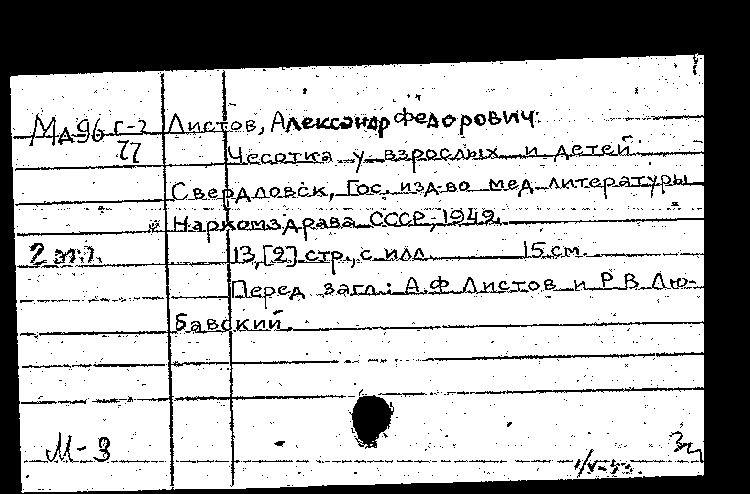 Мд96 Г-2 Листов, Александр Федорович.
77 Чесотка у взрослых и детей
Свердловск, Гос. изд-во мед. литературы
Наркомздрава СССР, 1949.
2 экз. 13,[2] стр., с илл. 15 см.
Перед загл.: А.Ф Листов и Р В Лю-
бавский.
М-3